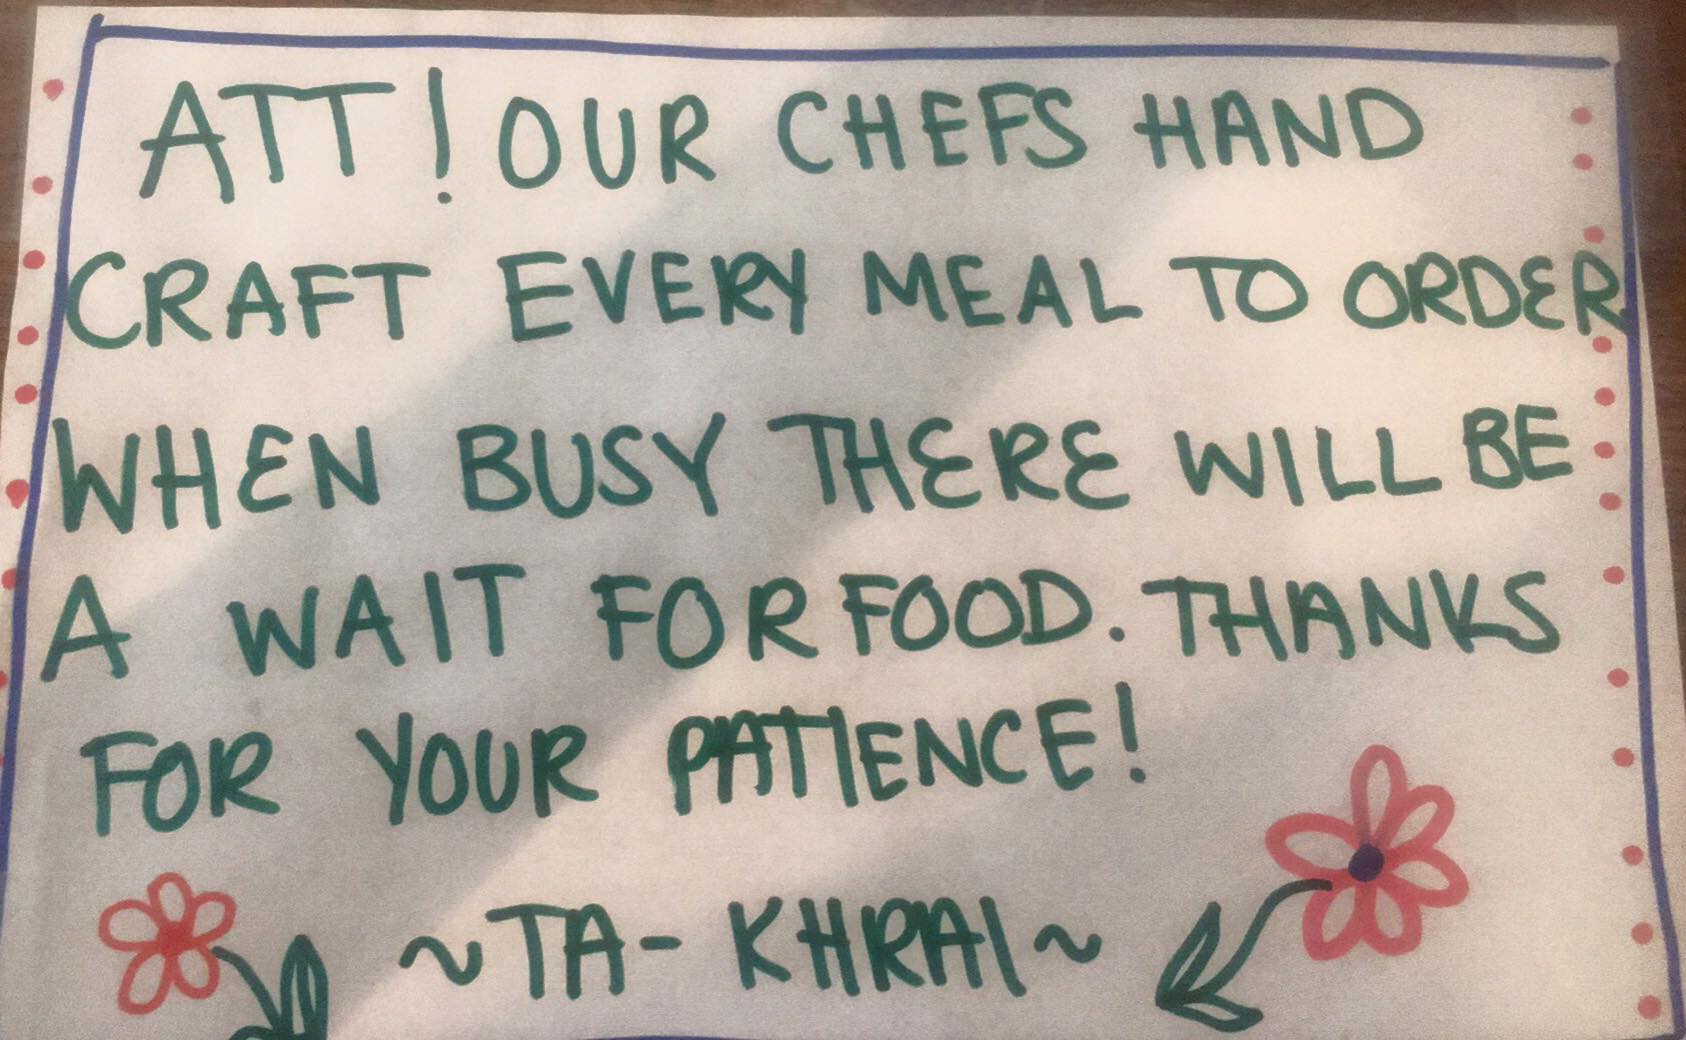 ATT! OUR CHEFS HAND
CRAFT EVERY MEAL TO ORDER
WHEN BUSY THERE WILL BE
A WAIT FOR FOOD. THANKS
FOR YOUR PATIENCE!
~TA-KHRAI~